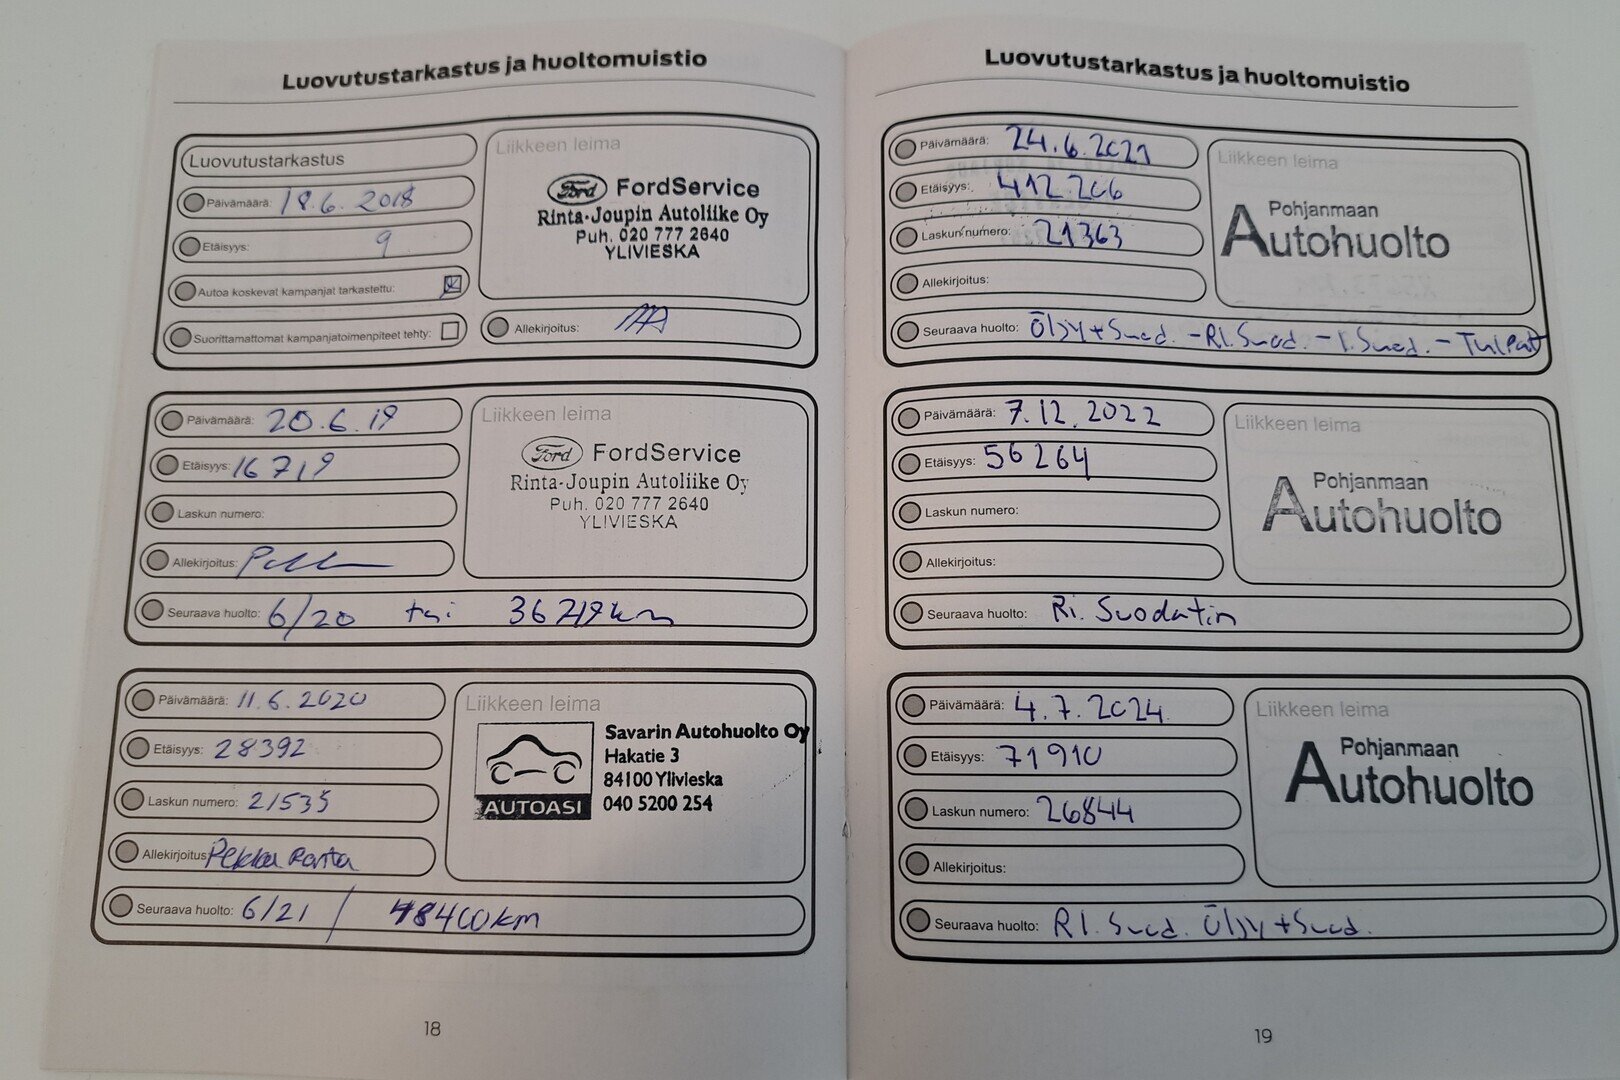 Luovutustarkastus ja huoltomuistio
Luovutustarkastus
Päivämäärä: 18.6.2018
Etäisyys: 9
Autoa koskevat kampanjat tarkastettu:
Suorittamattomat kampanjatoimenpiteet tehty:
Liikkeen leima
Ford FordService
Rinta-Joupin Autoliike Oy
Puh. 020 777 2640
YLIVIESKA
Allekirjoitus:
Päivämäärä: 20.6.19
Etäisyys: 16719
Laskun numero:
Allekirjoitus:
Liikkeen leima
Ford FordService
Rinta-Joupin Autoliike Oy
Puh. 020 777 2640
YLIVIESKA
Seuraava huolto: 6/20 tai 36719km
Päivämäärä: 11.6.2020
Etäisyys: 28392
Laskun numero: 21535
Allekirjoitus: Pekka Ranta
Liikkeen leima
AUTOASI
Savarin Autohuolto Oy
Hakatie 3
84100 Ylivieska
040 5200 254
Seuraava huolto: 6/21 / 48400km
18
Luovutustarkastus ja huoltomuistio
Päivämäärä: 24.6.2021
Etäisyys: 412206
Laskun numero: 21363
Allekirjoitus:
Liikkeen leima
Pohjanmaan
Autohuolto
Seuraava huolto: Öljy+Suod. - RI.Suod. - I.Suod. - Tulpat
Päivämäärä: 7.12.2022
Etäisyys: 56264
Laskun numero:
Allekirjoitus:
Liikkeen leima
Pohjanmaan
Autohuolto
Seuraava huolto: Ri. Suodatin
Päivämäärä: 4.7.2024
Etäisyys: 71910
Laskun numero: 26844
Allekirjoitus:
Liikkeen leima
Pohjanmaan
Autohuolto
Seuraava huolto: RI. Suod. Öljy+Suod.
19